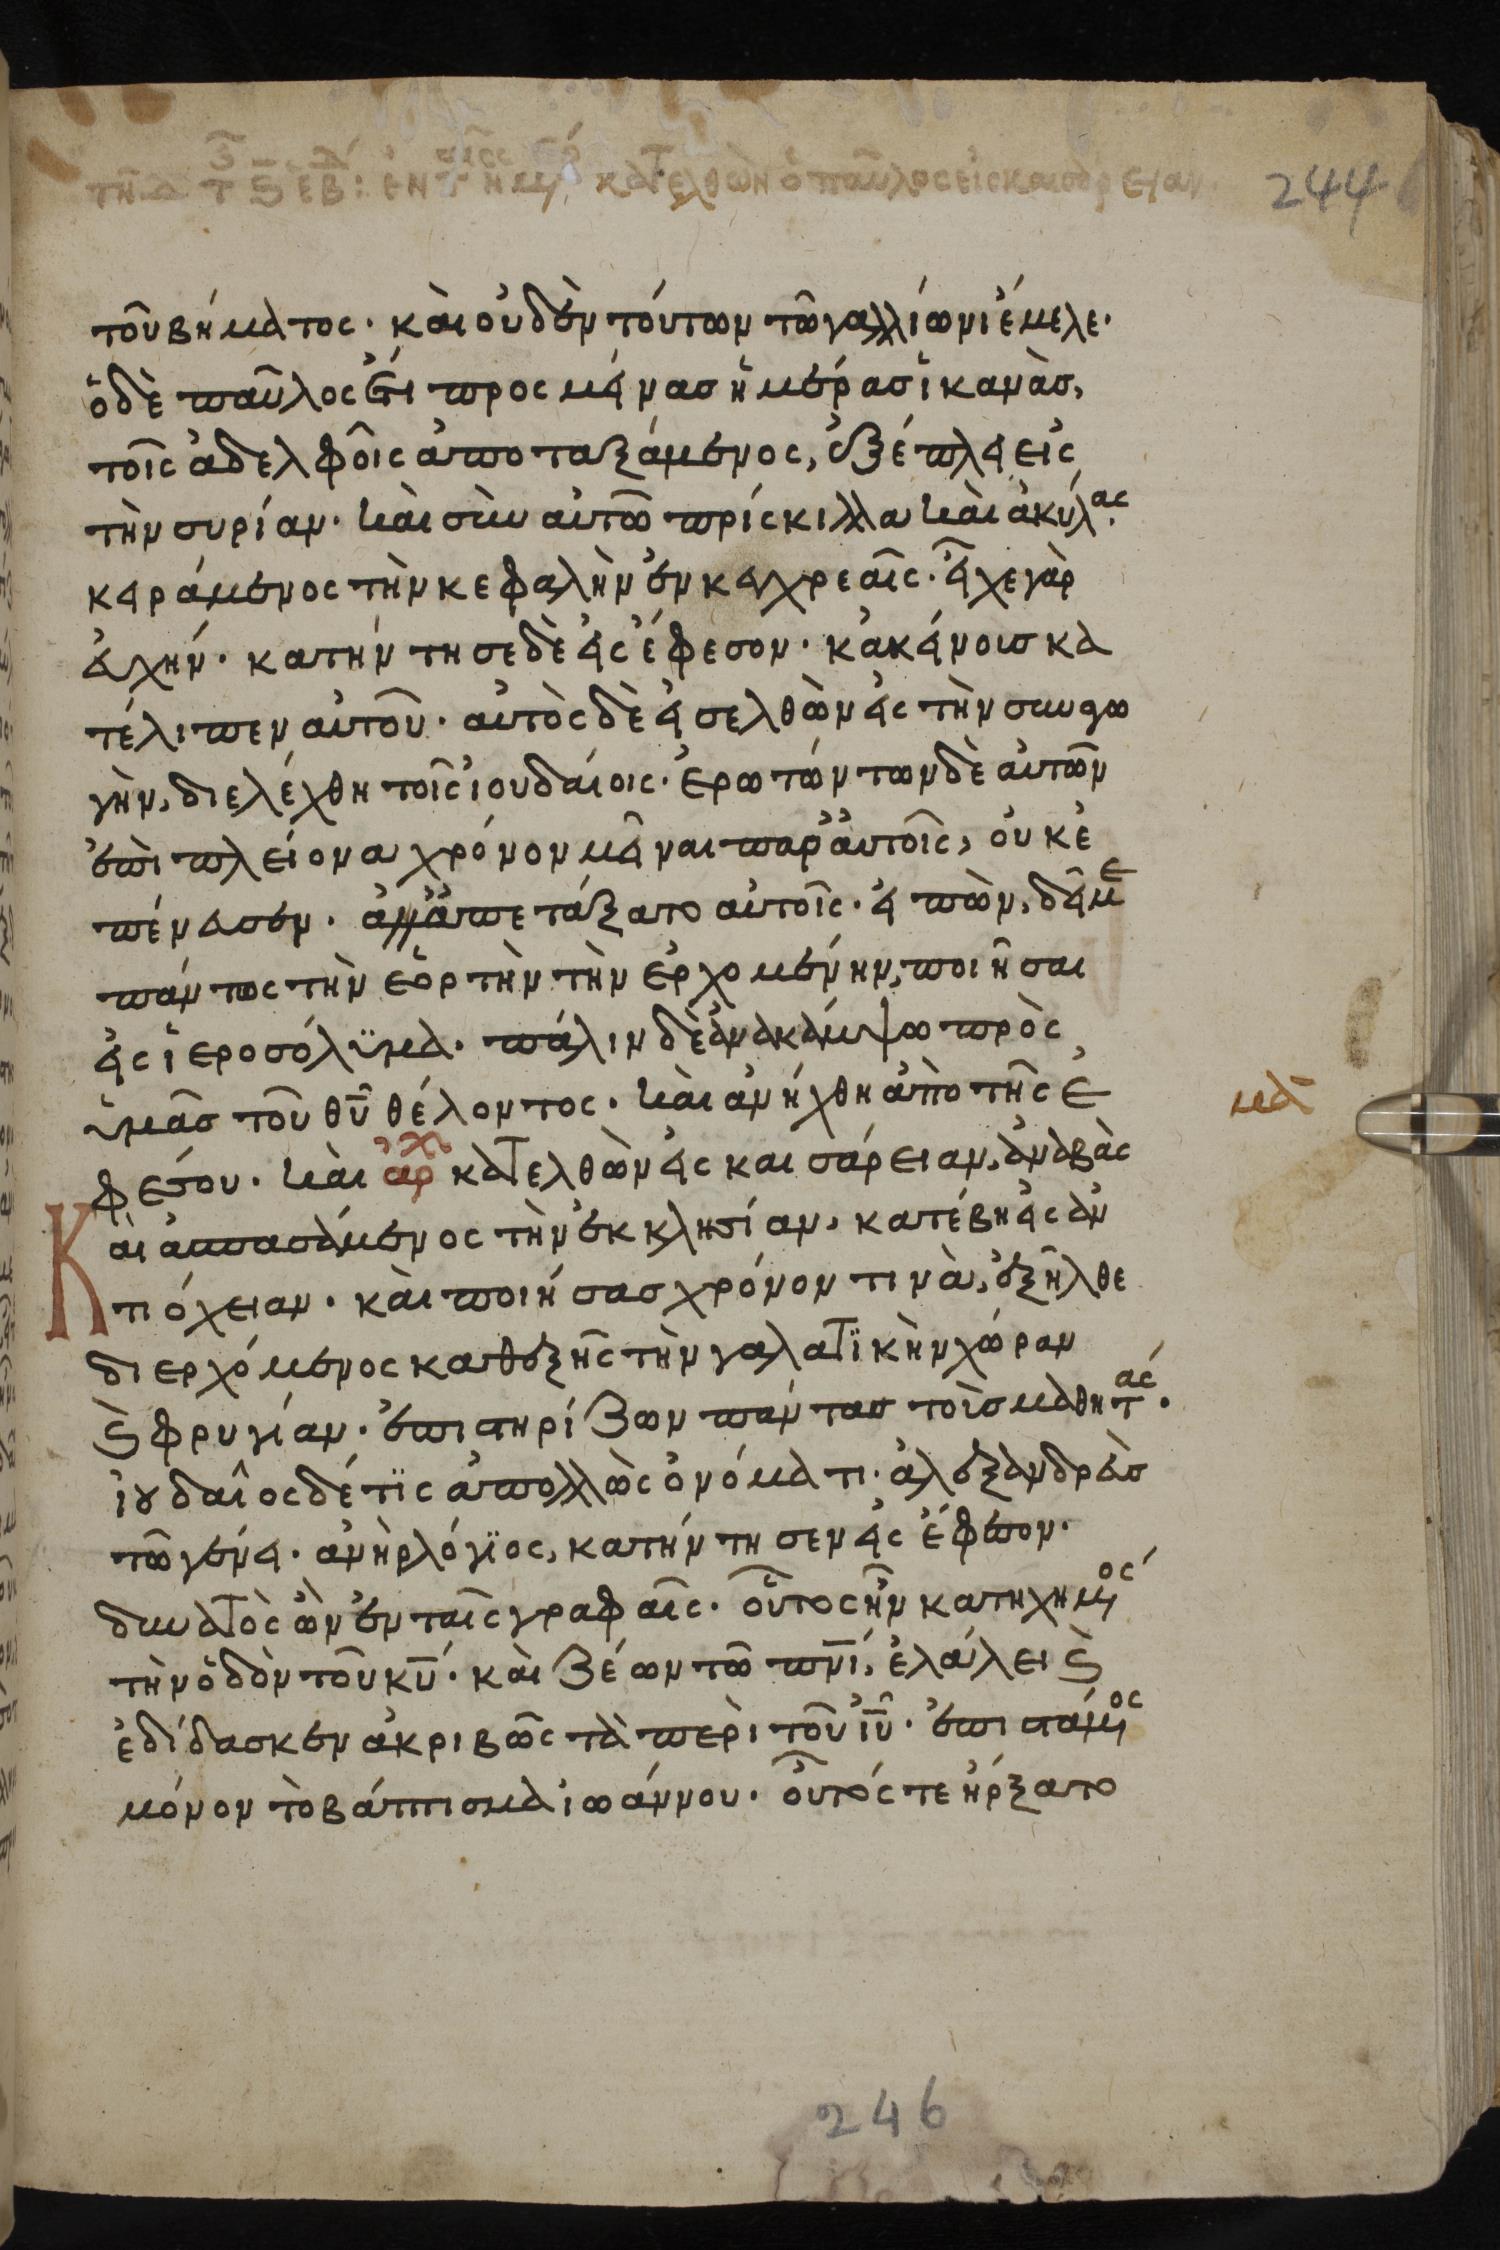 τῆ δ τ ς εβ: ἐν τ ημ, κατελθὼν ὁ παῦλος εἰς καισάρειαν 244
τοῦ βήματος· καὶ οὐδὲν τούτων τῶ γαλλίωνι ἔμελε·
ὁ δὲ παῦλος ἔτι προσμείνασ ἡμέρασ ἱκανὰσ,
τοῖς ἀδελφοῖς ἀποταξάμενος, ἐξέπλει εἰς
τὴν συρίαν· καὶ σὺν αὐτῶ πρίσκιλλα καὶ ἀκύλας·
κειράμενος τὴν κεφαλὴν ἐν κεγχρεαῖς· εἶχε γὰρ
εὐχήν· κατήντησε δὲ εἰς ἔφεσον· κἀκείνουσ κα
τέλιπεν αὐτοῦ· αὐτὸς δὲ εἰσελθὼν εἰς τὴν συναγω
γὴν, διελέχθη τοῖς ἰουδαίοις· ἐρωτώντων δὲ αὐτῶν
ἐπὶ πλείονα χρόνον μεῖναι παρ' αὐτοῖς, οὐκ ἐ
πένευσεν· ἀλλ' ἀπετάξατο αὐτοῖς· εἰπὼν, δεῖ με
πάντως τὴν ἑορτὴν τὴν ἐρχομένην, ποιῆσαι
εἰς ἱεροσόλϋμα· πάλιν δὲ ἀνακάμψω πρὸς
ὑμᾶσ τοῦ θῦ θέλοντος· καὶ ἀνήχθη ἀπὸ τῆς ἐ
φέσου· καὶ ἀρχ κατελθὼν εἰς καισάρειαν, ἀναβὰς
Καὶ ἀσπασάμενος τὴν ἐκκλησίαν, κατέβη εἰς ἀν
τιόχειαν· καὶ ποιήσασ χρόνον τινὰ, ἐξῆλθε
διερχόμενος καθεξῆς τὴν γαλατϊκὴν χώραν
ϗ φρυγίαν· ἐπιστηρίζων πάντασ τοὺσ μαθητάς·
ἰουδαῖος δέ τϊς ἀπολλὼς ὀνόματι· ἀλεξανδρεὺσ
τῶ γένει· ἀνὴρ λόγϊος, κατήντησεν εἰς ἔφεσον·
δυνατὸς ὢν ἐν ταῖς γραφαῖς· οὗτος ἦν κατηχημένος
τὴν ὁδὸν τοῦ κῦ· καὶ ζέων τῶ πνι, ἐλάλει ϗ
ἐδίδασκεν ἀκριβῶς τὰ περὶ τοῦ ἰῦ· ἐπιστάμενος
μόνον τὸ βάπτισμα ἰωάννου· οὗτός τε ἤρξατο
μα
246